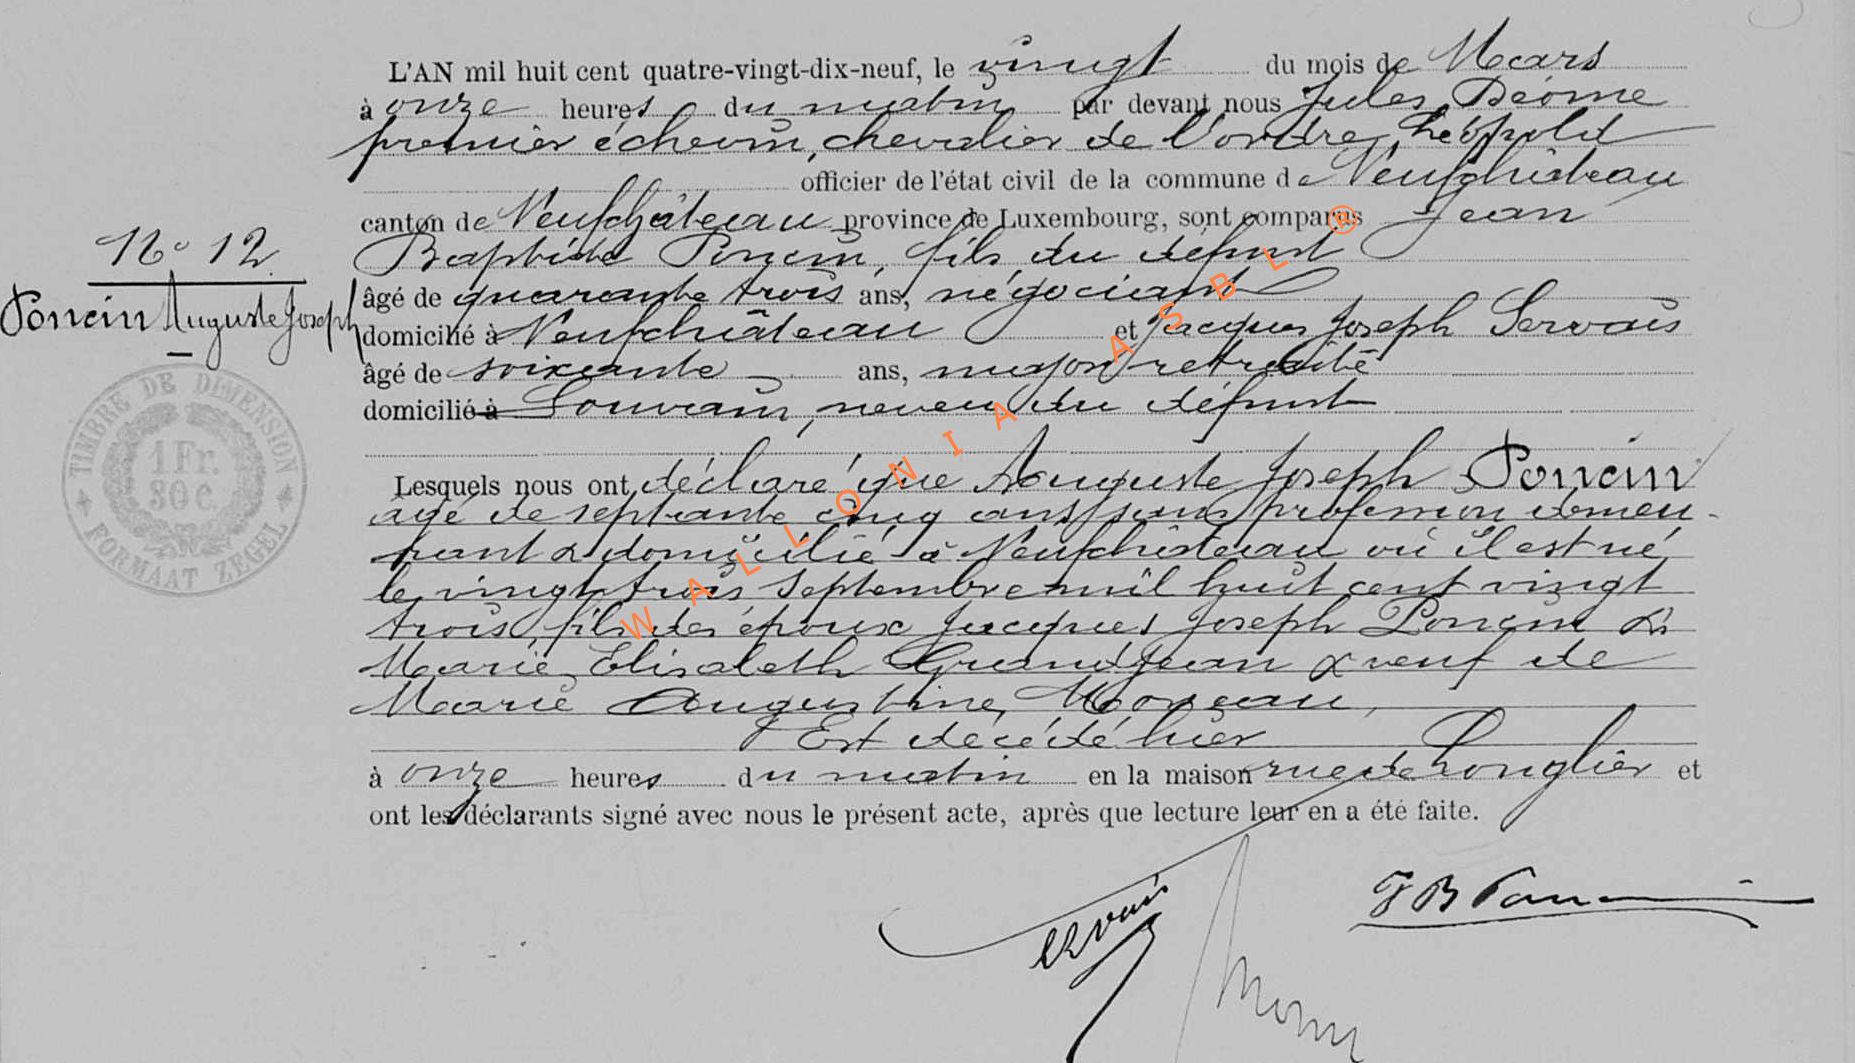 L'AN mil huit cent quatre-vingt-dix-neuf, le vingt du mois de Mars
à onze heures du matin par devant nous Jules Déome
premier échevin, chevalier de l'ordre Léopold
officier de l'état civil de la commune de Neufchâteau
canton de Neufchâteau province de Luxembourg, sont comparus Jean
Baptiste Poncin, fils du défunt
N° 12
âgé de quarante trois ans, négociant
Poncin Auguste Joseph
domicilié à Neufchâteau et Jacques Joseph Servais
âgé de soixante ans, major retraité
domicilié à Louvain, neveu du défunt
Lesquels nous ont déclaré que Auguste Joseph Poncin
âgé de septante cinq ans, sans profession demeu-
rant & domicilié à Neufchâteau où il est né
le vingt trois Septembre mil huit cent vingt
trois, fils des époux Jacques Joseph Poncin &
Marie Elisabeth Grandjean & veuf de
Marie Augustine Moreau,
Est décédé hier
à onze heures du matin en la maison rue de Longlier et
ont les déclarants signé avec nous le présent acte, après que lecture leur en a été faite.
TIMBRE DE DIMENSION
1 Fr.
30 C.
FORMAAT ZEGEL
WALLONIA ASBL ®
Servais
J B Poncin